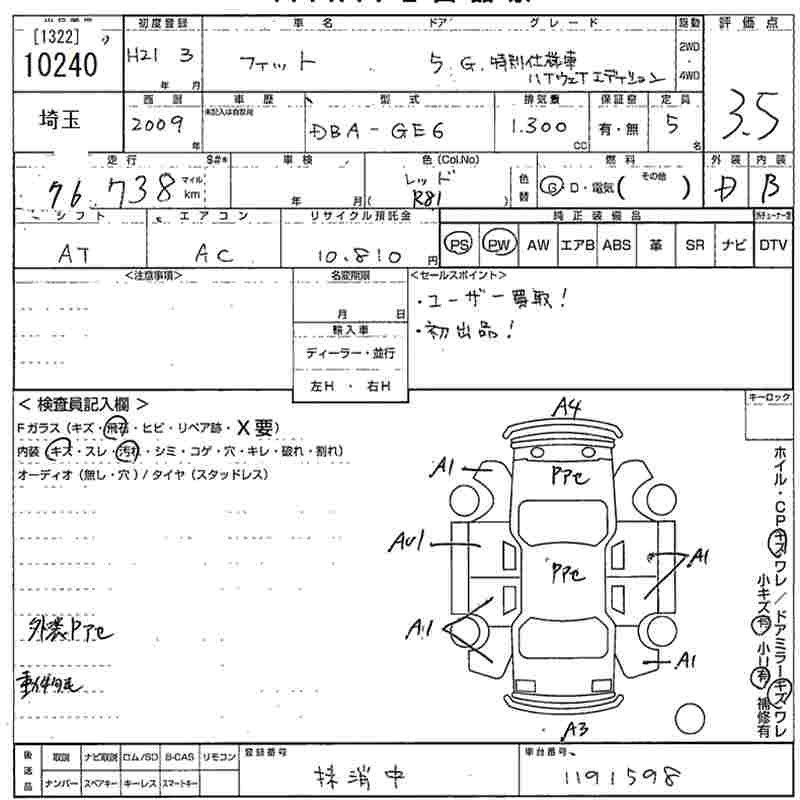 [1322]
10240
初度登録 車名 ドア グレード 駆動 評価点
H21 3 フィット 5 G 特別仕様車
年 月 ハイウェイエディション
2WD
・
4WD
埼玉
西暦 車歴 型式 排気量 保証書 定員
未記入は自家用
2009 DBA-GE6 1.300 有・無 5 3.5
年 CC 名
走行 S#* 車検 色(Col.No) 燃料 外装 内装
76,738 マイル km 年 月 レッド ( R81 ) 色替 G・D・電気( その他 ) D B
シフト エアコン リサイクル預託金 純正装備品
AT AC 10.810 円 PS PW AW エアB ABS 革 SR ナビ DTV
<注意事項> 名変期限 <セールスポイント>
・ユーザー買取!
月 日 ・初出品!
輸入車
ディーラー・並行
左H ・ 右H
<検査員記入欄> キーロック
Fガラス(キズ・飛石・ヒビ・リペア跡・X要)
内装(キズ・スレ・汚れ・シミ・コゲ・穴・キレ・破れ・割れ)
オーディオ(無し・穴)/タイヤ(スタッドレス)
A4
A1 PPセ
AU1 PPセ A1
A1 A1
A3
外装PPセ
ホイル・CPキズ・ワレ/ドアミラーキズ/ワレ
小キズ有 小U有 補修有
後送品 取説 ナビ取説 ロム/SD B-CAS リモコン 登録番号 車台番号
ナンバー スペアキー キーレス スマートキー 抹消中 1191598